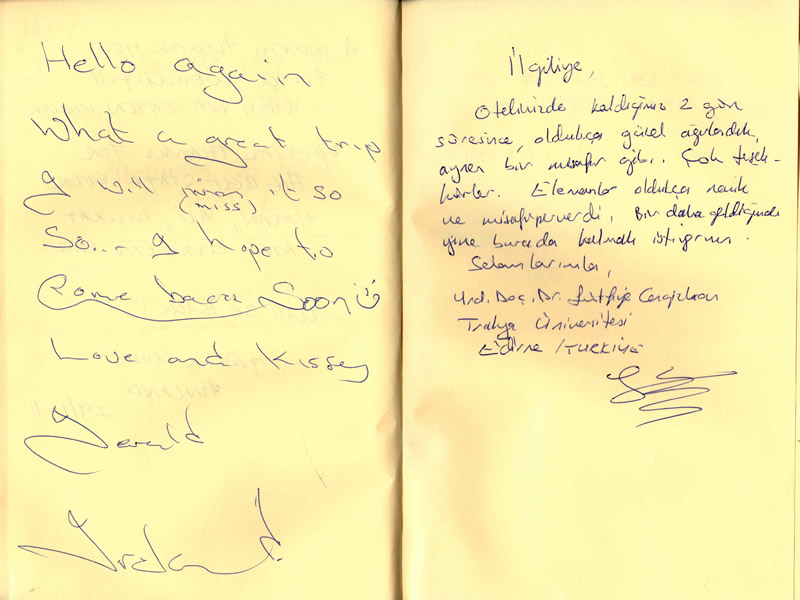 Hello again
What a great trip
I will (miss) it so
So... I hope to
Come back Soon
Love and Kissey
Gerald
Ireland
İlgiliye,
Otelinizde kaldığımız 2 gün
süresince, oldukça güzel ağırlandık,
aynen bir misafir gibi.. Çok teşek-
kürler. Elemanlar oldukça nazik
ve misafirperverdi, Bir daha geldiğimde
yine burada kalmak istiyorum.
Selamlarımla,
Yrd. Doç. Dr. Lütfiye
Trakya Üniversitesi
Edirne / TÜRKİYE